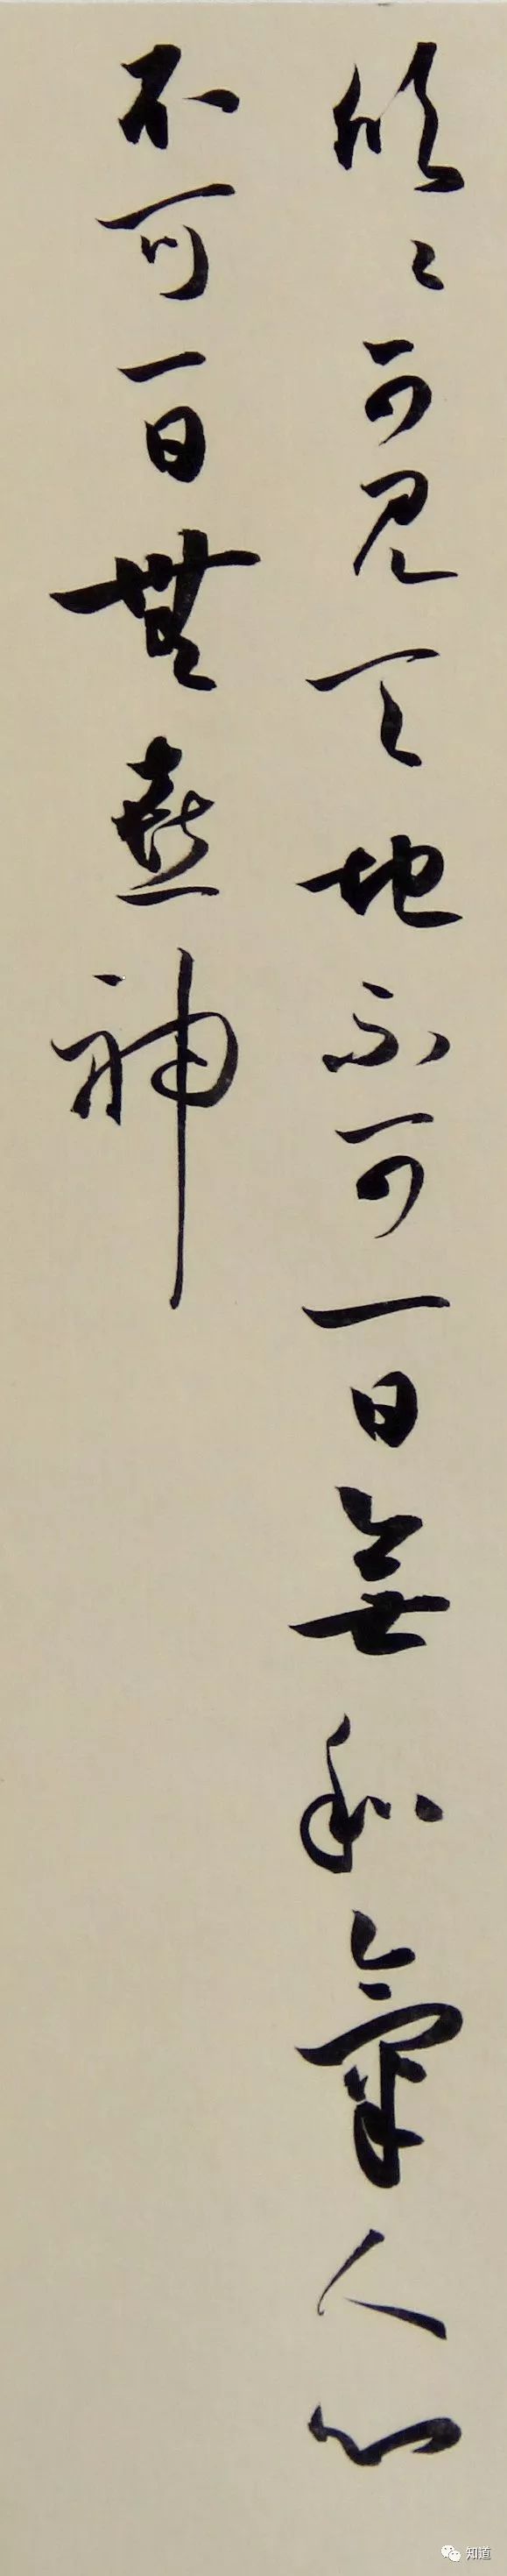 欣〻可見天地不可一日無和氣人心
不可一日無喜神
知道